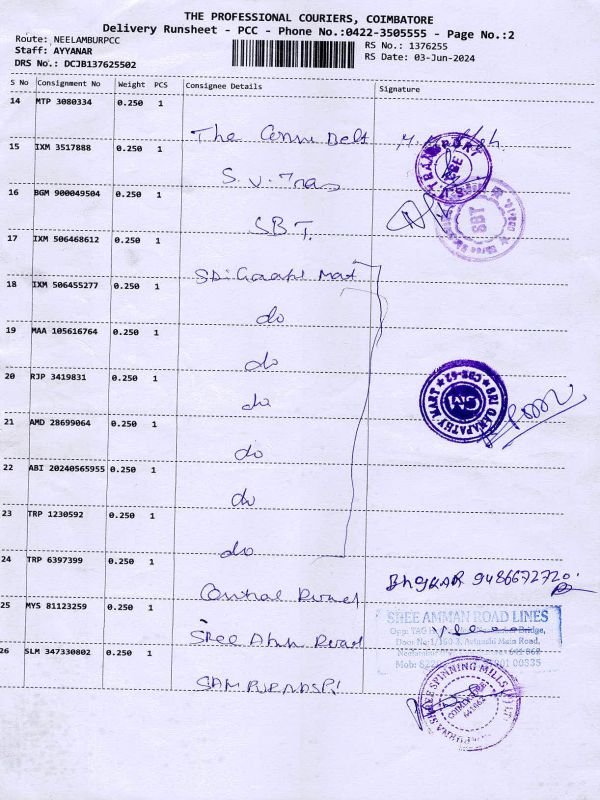 THE PROFESSIONAL COURIERS, COIMBATORE
Delivery Runsheet - PCC - Phone No.:0422-3505555 - Page No.:2
Route: NEELAMBURPCC
Staff: AYYANAR
DRS No.: DCJB137625502
RS No.: 1376255
RS Date: 03-Jun-2024
S No Consignment No Weight PCS Consignee Details Signature
14 MTP 3080334 0.250 1
The Conni Belt
15 IXM 3517888 0.250 1
S.V. Trans
16 BGM 900049504 0.250 1
SBT.
17 IXM 506468612 0.250 1
Sri Ganapathy Mart
18 IXM 506455277 0.250 1
do
19 MAA 105616764 0.250 1
do
20 RJP 3419831 0.250 1
do
21 AMD 28699064 0.250 1
do
22 ABI 20240565955 0.250 1
do
23 TRP 1230592 0.250 1
do
24 TRP 6397399 0.250 1
Central
25 MYS 81123259 0.250 1
Sree Amman Road
26 SLM 347330802 0.250 1
SAMPURNA SPI
S.V. TRANSPORT
CBE
SBT
SRI GANAPATHY MART
CBE-62
GM
9486672720
SREE AMMAN ROAD LINES
SHREE SPINNING MILLS
COIMBATORE